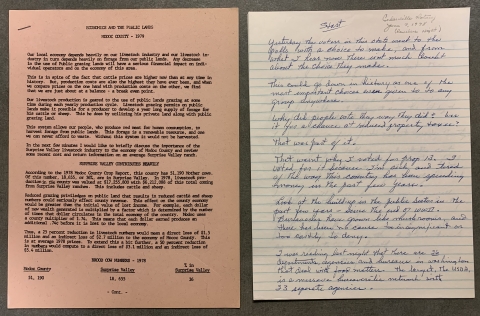 ECONOMICS AND THE PUBLIC LANDS
MODOC COUNTY - 1979
Our local economy depends heavily on our livestock industry and our livestock in-
dustry in turn depends heavily on forage from our public lands. Any decrease
in the use of Public grazing lands will have a serious financial impact on indi-
vidual operators and on the economy of this area.
This is in spite of the fact that cattle prices are higher now than at any time in
history. But, production costs are also the highest they have ever been, and when
we compare prices on the one hand with production costs on the other, we find
that we are just about at a balance - a break even point.
Our livestock production is geared to the use of public lands grazing at some
time during each yearly production cycle. Livestock grazing permits on public
lands make it possible for a producer to develop a year long supply of forage for
his cattle or sheep. This he does by utilizing his private land along with public
grazing land.
This system allows our people, who produce red meat for human consumption, to
harvest forage from public lands. This forage is a renewable resource, and one
we can never afford to waste. Without this system it would not be harvested.
In the next few minutes I would like to briefly discuss the importance of the
Surprise Valley livestock industry to the economy of Modoc County and review
some recent cost and return information on an average Surprise Valley ranch.
SURPRISE VALLEY CONTRIBUTES HEAVILY
According to the 1978 Modoc County Crop Report, this county has 51,190 Mother cows.
Of this number, 18,635, or 36%, are in Surprise Valley. In 1978 livestock pro-
duction in the county was valued at
coming from Surprise Valley. This includes cattle and sheep.
Reduced grazing privileges on public land that results in reduced cattle and sheep
numbers could seriously affect county revenue. This effect on the county economy
would be greater than the initial value of lost income. For example, each dollar
of new wealth generated is multiplied by a factor which is determined by the number
of times that dollar circulates in the local economy of the county. Modoc uses
a county multiplier of 2.54. This means that each dollar earned produces an
additional before it is lost to the local economy.
Thus, a 25 percent reduction in livestock numbers would mean a direct loss of $1.3
million and an indirect loss of $2.7 million to the economy of Modoc County. This
is at average 1978 prices. To extend this a bit further, a 50 percent reduction
in numbers would compute to a direct loss of $3.1 million and an indirect loss of
$5.4 million.
BROOD COW NUMBERS - 1978
Modoc County Surprise Valley % in Surprise Valley
51,190 18,635 36
- Cont. -
Cedarville
June 8, 1978
Yesterday the voters in this state went to the
polls with a choice to make, and from
what I hear now there isn't much doubt
about the choice they made.
This could go down in history as one of the
most important choices ever given to to any
group anywhere.
Why did people vote they way they did? Was
it for a chance at reduced property taxes?
That was part of it.
That wasn't why I voted for Prop 13. I
voted for it because I'm sick and tired
of the way this country has been spending
money in the past few years.
Look at the buildup in the public sector in the
past ten years - where the gov't went.
Bureaucracy has grown like wild
there has been no cause
too earthly to deny.
I was reading last night that there are 36
departments, agencies and bureaus in washington
that deal with food matters. The largest, the USDA,
is a massive bureaucratic network with
23 separate agencies.